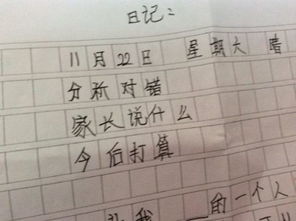 日记:
11月22日 星期六 晴
分析对错
家长说什么
今后打算
我 的一个人